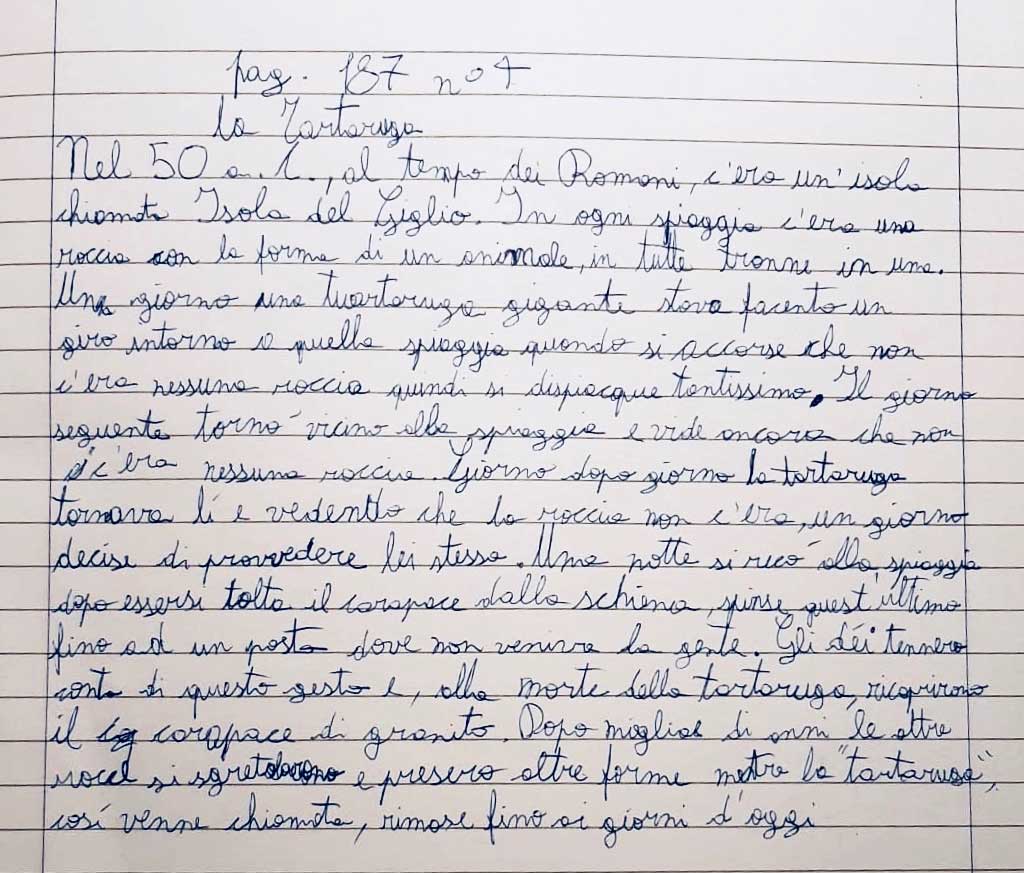 pag. 187 n° 4
la Tartaruga
Nel 50 a.C., al tempo dei Romani, c'era un'isola
chiamata Isola del Giglio. In ogni spiaggia c'era una
roccia con la forma di un animale, in tutte tranne in una.
Un giorno una tuartaruga gigante stava facento un
giro intorno a quella spiaggia quando si accorse che non
c'era nessuna roccia quindi si dispiacque tantissimo. Il giorno
seguente tornò vicino alla spiaggia e vide ancora che non
c'era nessuna roccia. Giorno dopo giorno la tartaruga
tornava lì e vedentto che la roccia non c'era, un giorno
decise di provvedere lei stessa. Una notte si recò alla spiaggia
dopo essersi tolta il carapace dalla schiena, spinse quest'ultimo
fino ad un posto dove non veniva la gente. Gli déi tennero
conto di questo gesto e, alla morte della tartaruga, ricoprirono
il carapace di granito. Dopo migliai di anni le altre
si sgretolarono e presero altre forme mentre la "tartaruga",
così venne chiamata, rimase fino ai giorni d'oggi